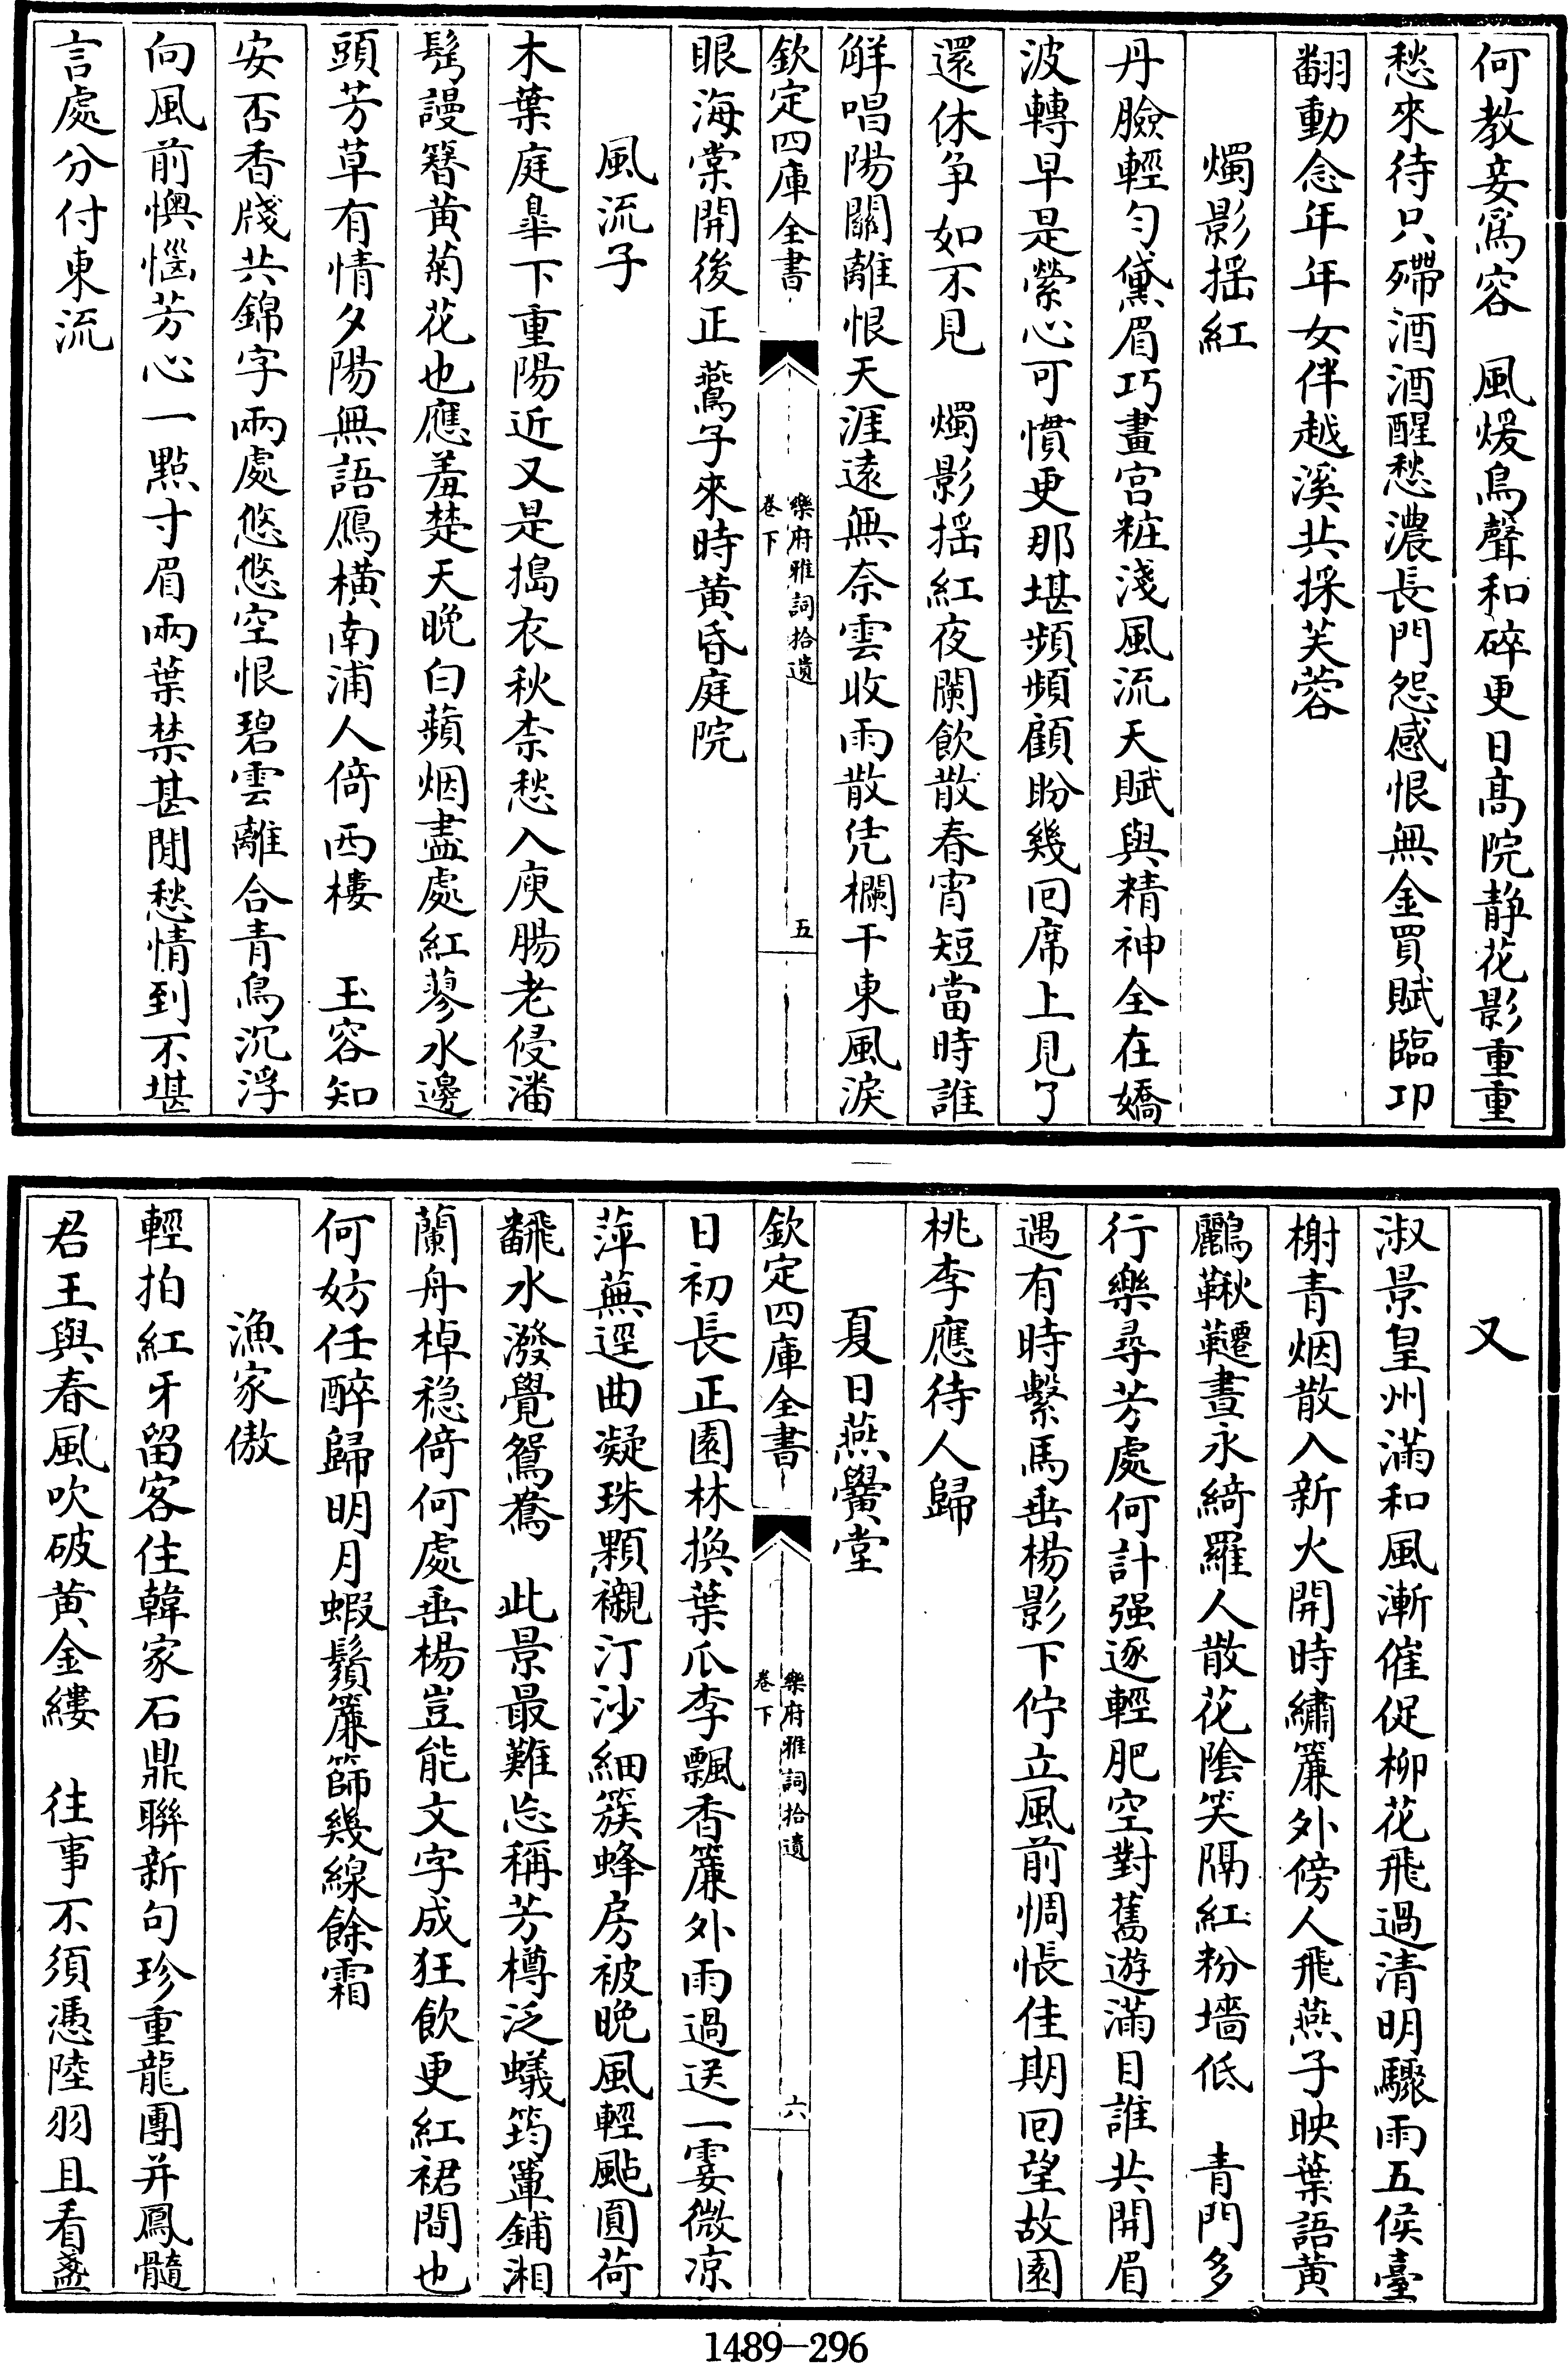 何教妾爲容　風煖鳥聲和碎更日髙院静花影重重
愁來待只殢酒酒醒愁濃長門怨感恨無金買賦臨卭
翻動念年年女伴越溪共採芙蓉
燭影揺紅
丹臉輕勻黛眉巧畫宫粧淺風流天賦與精神全在嬌
波轉早是縈心可慣更那堪頻頻顧盼幾回席上見了
還休争如不見　燭影揺紅夜闌飲散春宵短當時誰
解唱陽關離恨天涯逺無奈雲收雨散凭欄干東風淚
欽定四庫全書
樂府雅詞拾遺
卷下
五
眼海棠開後正鷰子來時黄昏庭院
風流子
木葉庭臯下重陽近又是搗衣秋柰愁入庾腸老侵潘
鬂謾簪黄菊花也應羞楚天晚白蘋烟盡處紅蓼水邊
頭芳草有情夕陽無語鴈橫南浦人倚西樓　玉容知
安否香牋共錦字兩處悠悠空恨碧雲離合青鳥沉浮
向風前懊惱芳心一點寸眉兩葉禁甚閒愁情到不堪
言處分付東流
又
淑景皇州滿和風漸催促柳花飛過清明驟雨五侯臺
榭青烟散入新火開時繡簾外傍人飛燕子映葉語黄
鸝鞦韆晝永綺羅人散花陰笑隔紅粉墻低　青門多
行樂尋芳處何計强逐輕肥空對舊遊滿目誰共開眉
遇有時繫馬垂楊影下佇立風前惆悵佳期回望故園
桃李應待人歸
夏日燕黌堂
欽定四庫全書
樂府雅詞拾遺
卷下
六
日初長正園林換葉瓜李飄香簾外雨過送一霎微凉
萍蕪逕曲凝珠顆襯汀沙細簇蜂房被晚風輕颭圓荷
飜水潑覺鴛鴦　此景最難忘稱芳樽泛蟻筠簟鋪湘
蘭舟棹穏倚何處垂楊豈能文字成狂飲更紅裙間也
何妨任醉歸明月蝦鬚簾篩幾線餘霜
漁家傲
輕拍紅牙留客住韓家石鼎聯新句珍重龍團并鳳髓
君王與春風吹破黄金縷　往事不須憑陸羽且看盞
1489—296